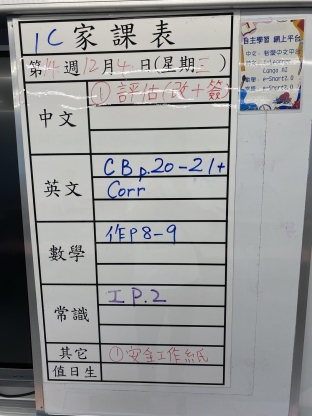 1C 家課表
第14週12月4日(星期三)
中文
①評估(改+簽)
英文
CB p.20-21+
Corr
數學
作P8-9
常識
工P.2
其它
①安全工作紙
值日生
自主學習 網上平台